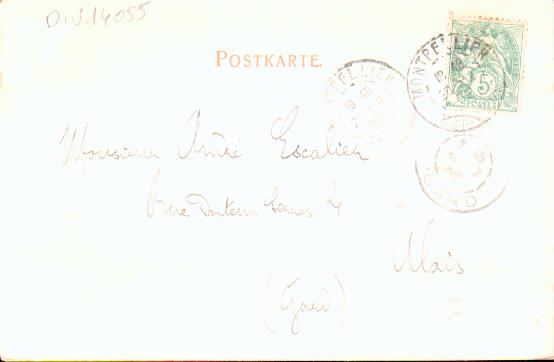 DIV14055
POSTKARTE.
MONTPELLIER
MONTPELLIER
5
POSTES
GARD
Monsieur André Escalier
Rue Docteur 4
Alais
(Gard)